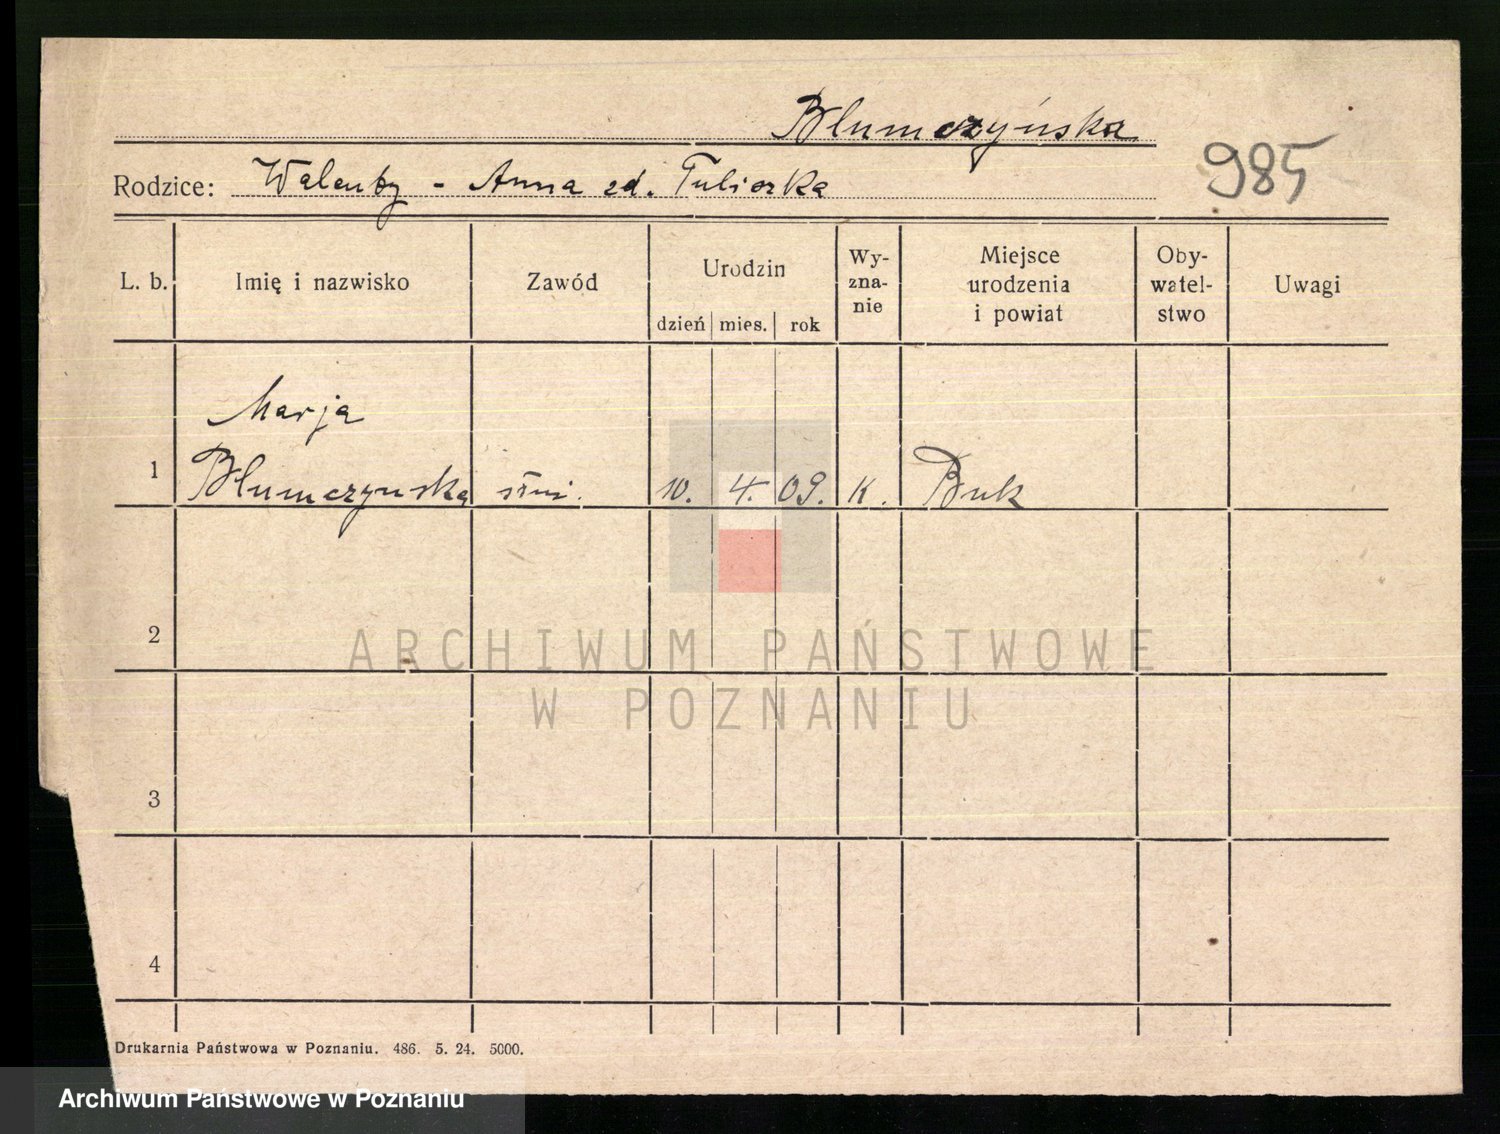 Blumczyńska
985
Rodzice: Walenty - Anna zd.
L. b. Imię i nazwisko Zawód Urodzin dzień mies. rok Wy-zna-nie Miejsce urodzenia i powiat Oby-watel-stwo Uwagi
Marja
1 Blumczynska 10. 4. 09. K. Buk
2
ARCHIWUM PAŃSTWOWE
W POZNANIU
3
4
Drukarnia Państwowa w Poznaniu. 486. 5. 24. 5000.
Archiwum Państwowe w Poznaniu